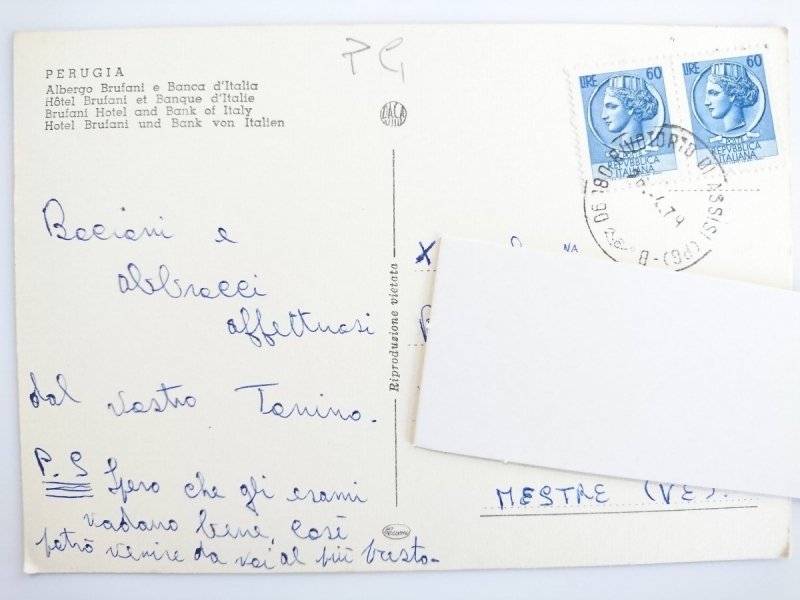 PG
PERUGIA
Albergo Brufani e Banca d'Italia
Hôtel Brufani et Banque d'Italie
Brufani Hotel and Bank of Italy
Hotel Brufani und Bank von Italien
LIRE 60
POSTE
REPVBBLICA
ITALIANA
LIRE 60
POSTE
REPVBBLICA
ITALIANA
06080 RIVOTORTO DI ASSISI (PG) - B
4.79
Riproduzione vietata
Bacioni e
abbracci
affettuosi
dal vostro Tonino.
P.S Spero che gli esami
vadano bene, così
potrò venire da voi al più presto-
X
NA
MESTRE (VE).